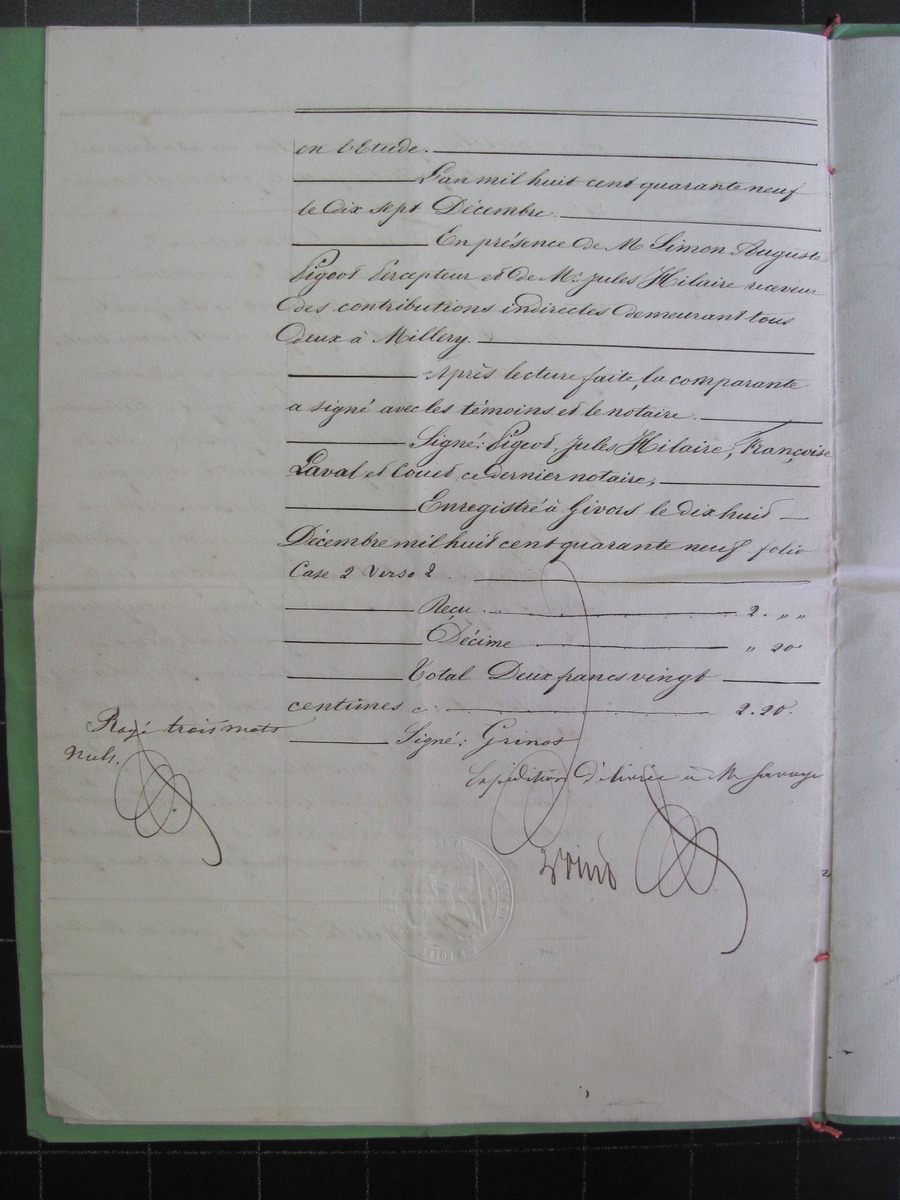 en l'Etude.
L'an mil huit cent quarante neuf
le dix sept Décembre.
En présence de M. Simon Auguste
Pigeot Percepteur et de Mr. Jules Hilaire receveur
des contributions indirectes demeurant tous
deux à Millery.
Après lecture faite, la comparante
a signé avec les témoins et le notaire.
Signé: Pigeot, Jules Hilaire, Françoise
Laval et Couet, ce dernier notaire,
Enregistré à Givors le dix huit
Décembre mil huit cent quarante neuf folio
Case 2 Verso 2.
Reçu 2. " "
Décime " 20
Total Deux francs vingt
centimes c. 2.20.
Signé: Grinos
Rayé trois mots
nuls.
Expédition délivrée à Mr